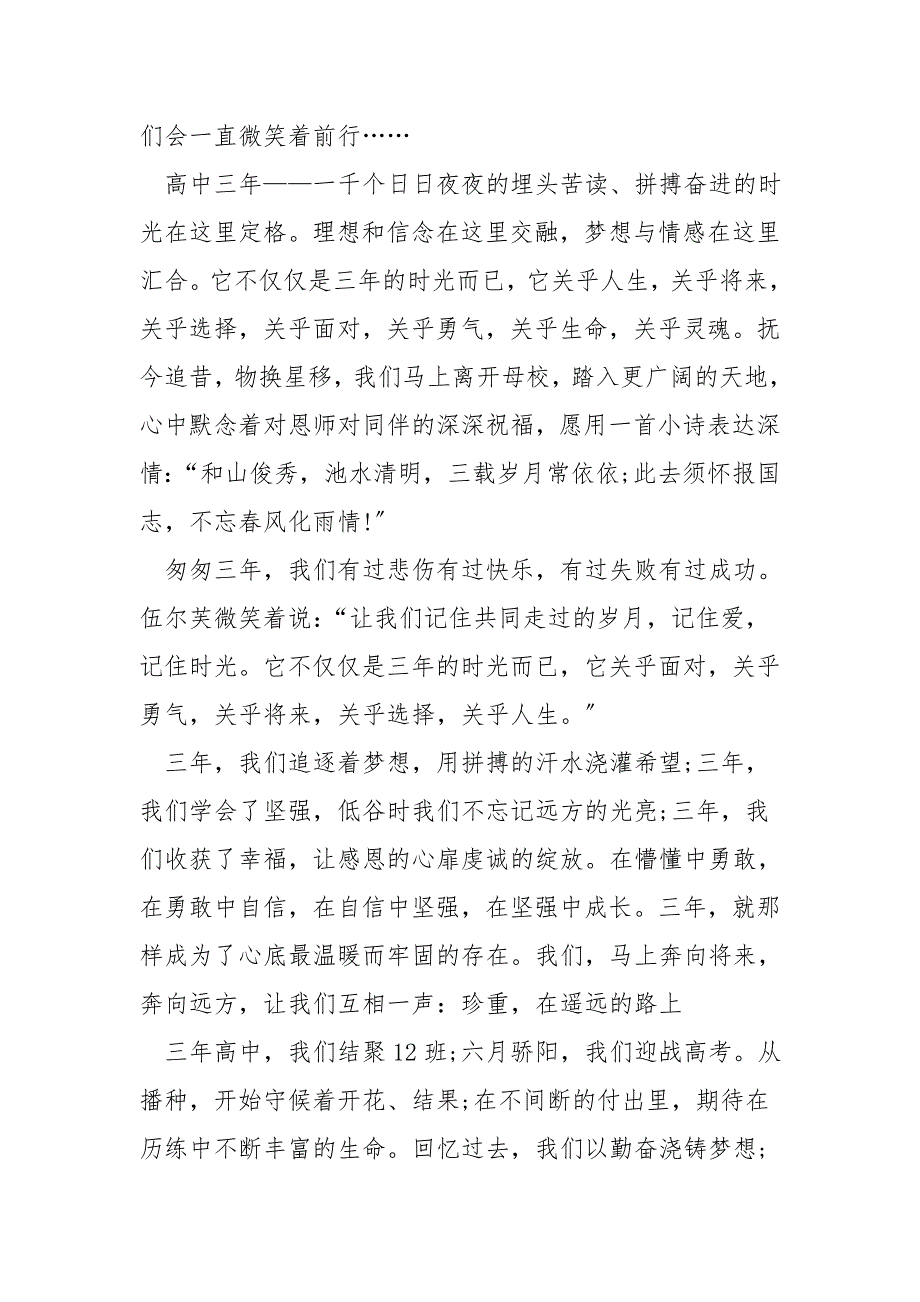 们会一直微笑着前行……
高中三年——一千个日日夜夜的埋头苦读、拼搏奋进的时
光在这里定格。理想和信念在这里交融，梦想与情感在这里
汇合。它不仅仅是三年的时光而已，它关乎人生，关乎将来，
关乎选择，关乎面对，关乎勇气，关乎生命，关乎灵魂。抚
今追昔，物换星移，我们马上离开母校，踏入更广阔的天地，
心中默念着对恩师对同伴的深深祝福，愿用一首小诗表达深
情：“和山俊秀，池水清明，三载岁月常依依;此去须怀报国
志，不忘春风化雨情!〞
匆匆三年，我们有过悲伤有过快乐，有过失败有过成功。
伍尔芙微笑着说：“让我们记住共同走过的岁月，记住爱，
记住时光。它不仅仅是三年的时光而已，它关乎面对，关乎
勇气，关乎将来，关乎选择，关乎人生。〞
三年，我们追逐着梦想，用拼搏的汗水浇灌希望;三年，
我们学会了坚强，低谷时我们不忘记远方的光亮;三年，我
们收获了幸福，让感恩的心扉虔诚的绽放。在懵懂中勇敢，
在勇敢中自信，在自信中坚强，在坚强中成长。三年，就那
样成为了心底最温暖而牢固的存在。我们，马上奔向将来，
奔向远方，让我们互相一声：珍重，在遥远的路上
三年高中，我们结聚12班;六月骄阳，我们迎战高考。从
播种，开始守候着开花、结果;在不间断的付出里，期待在
历练中不断丰富的生命。回忆过去，我们以勤奋浇铸梦想;